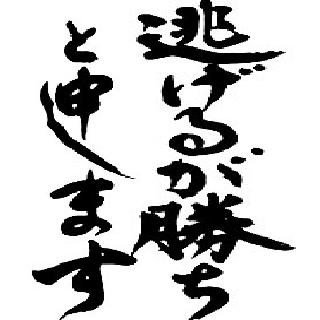 逃げるが勝ち
と申します